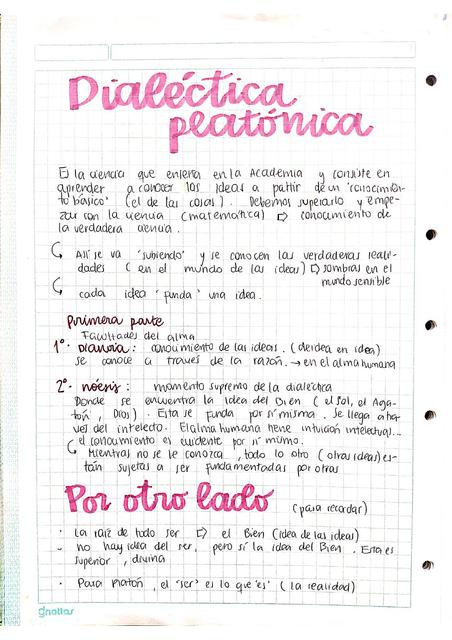 Dialéctica
platónica
Es la ciencia que enseña en la Academia y consiste en
aprender a conocer las ideas a partir de un "conocimien-
to básico" (el de las cosas). Debemos superarlo y empe-
zar con la ciencia (matemática) ⇨ conocimiento de
la verdadera ciencia.
Allí se va "subiendo" y se conocen las verdaderas reali-
dades (en el mundo de las ideas) ⇨ sombras en el
mundo sensible
cada idea "funda" una idea.
Primera parte
Facultades del alma
1°· Dianoia: conocimiento de las ideas. (de idea en idea)
se conoce a través de la razón. → en el alma humana
2°· nóesis: momento supremo de la dialéctica
Donde se encuentra la idea del Bien (el Sol, el Aga-
tón, Dios). Esta se funda por sí misma. Se llega a tra-
vés del intelecto. El alma humana tiene intuición intelectual...
el conocimiento es evidente por sí mismo.
Mientras no se le conozca, todo lo otro (otras ideas) es-
tán sujetas a ser fundamentadas por otras
Por otro lado (para recordar)
· La raíz de todo ser ⇨ el Bien (idea de las ideas)
- no hay idea del ser, pero sí la idea del Bien. Esta es
superior, divina
· Para Platón, el "ser" es lo que "es" (la realidad)